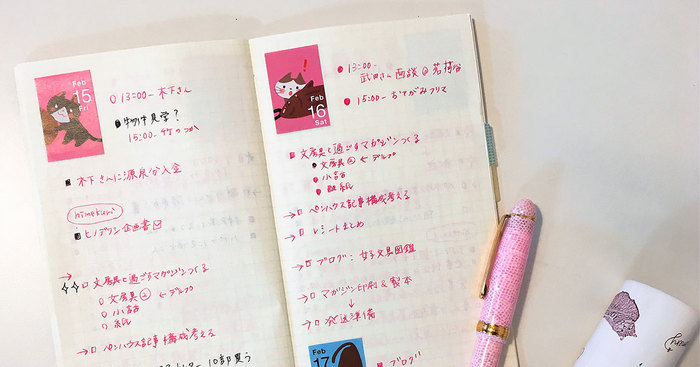 Feb
15
Fri
13:00- 木下さん
物件見学?
15:00- 竹のつか
木下さんに源泉分入金
himekuri
ヒノデワシ企画書
→
文房具と過ごすマガジンつくる
文房具② ← デルプ
小説
紙
→ ペンハウス記事構成考える
10部買う
Feb
16
Sat
13:00-
武田さん面談@茗荷谷
15:00- おてがみフリマ
文房具と過ごすマガジンつくる
文房具② ← デルプ
小説
→ ペンハウス記事構成考える
→ レシートまとめ
→ ブログ: 女子文具図鑑
→ マガジン印刷&製本
↓
→ 発送準備
Feb
17
ブログ